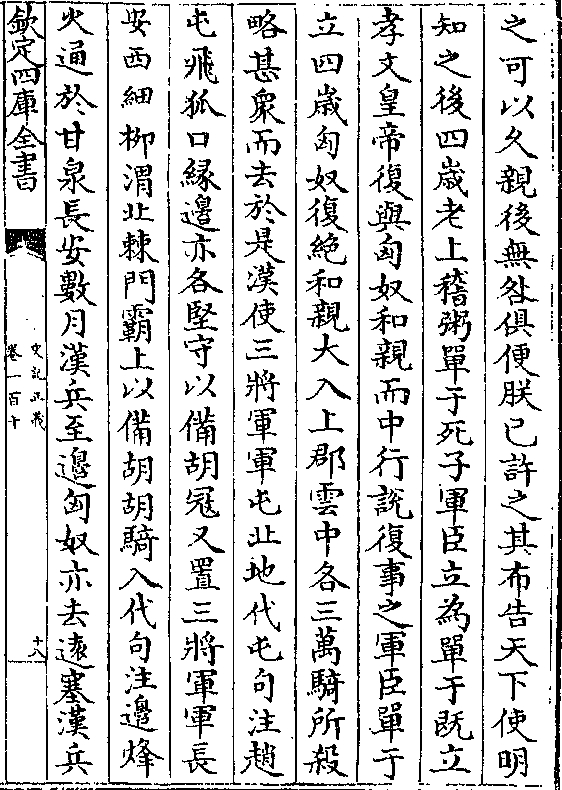 之可以久親後無咎俱便朕已許之其布告天下使明
知之後四嵗老上稽粥單于死子軍臣立為單于既立
孝文皇帝復與匈奴和親而中行說復事之軍臣單于
立四嵗匈奴復絶和親大入上郡雲中各三萬騎所殺
略甚衆而去於是漢使三將軍軍屯北地代屯句注趙
屯飛狐口縁邊亦各堅守以備胡冦又置三將軍軍長
安西細柳渭北棘門霸上以備胡胡騎入代句注邊烽
火通於甘泉長安數月漢兵至邊匈奴亦去逺塞漢兵
欽定四庫全書
史記正義
卷一百十
十八